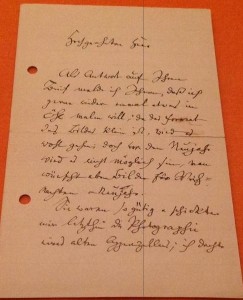 Hochgeehrter Herr
Als Antwort auf Ihren
Brief melde ich Ihnen, daß ich
gerne wieder einmal etwas in
Öhl malen will; da das Format
des Bildes klein ist, wird es
wohl gehen; doch vor dem Neujahr
wird es nicht möglich sein, man
wünscht eben Bilder für Weih-
nachten u Neujahr.
Sie waren so gütig u schickten
mir letzthin die Photographie
eines alten Appenzellers; ich dachte